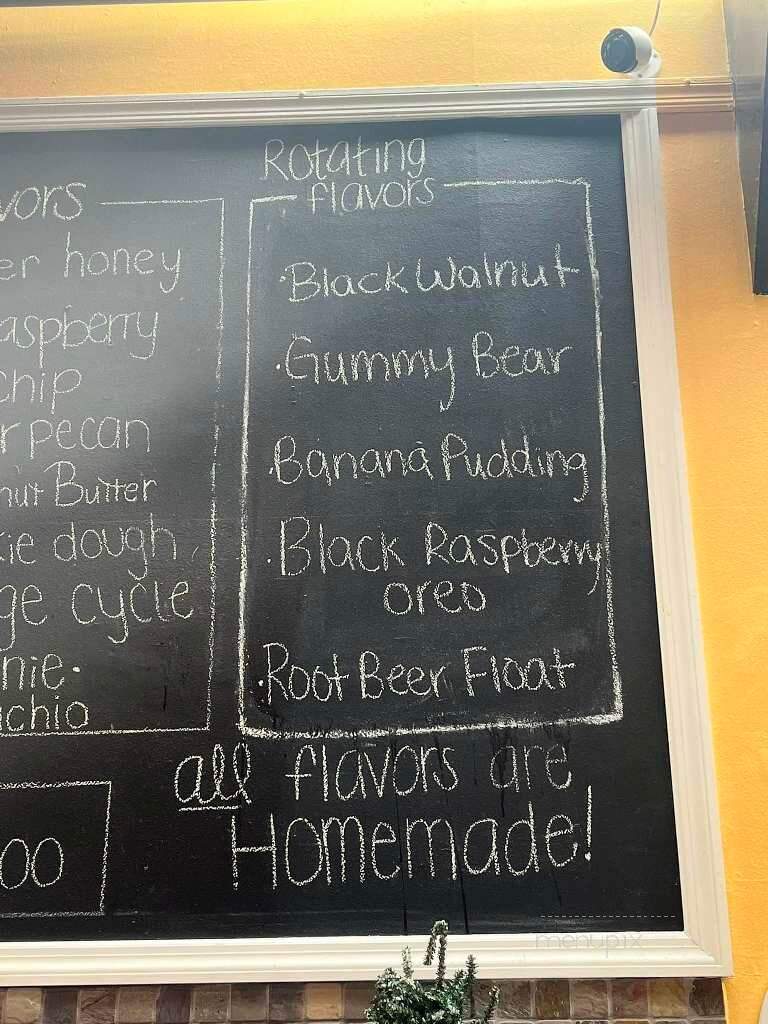 vors
er honey
aspberry
chip
r pecan
nut Butter
kie dough
ge cycle
nie.
achio
00
Rotating
flavors
·Black Walnut
·Gummy Bear
·Banana Pudding
·Black Raspberry
oreo
·Root Beer Float
all flavors are
Homemade!
menupix